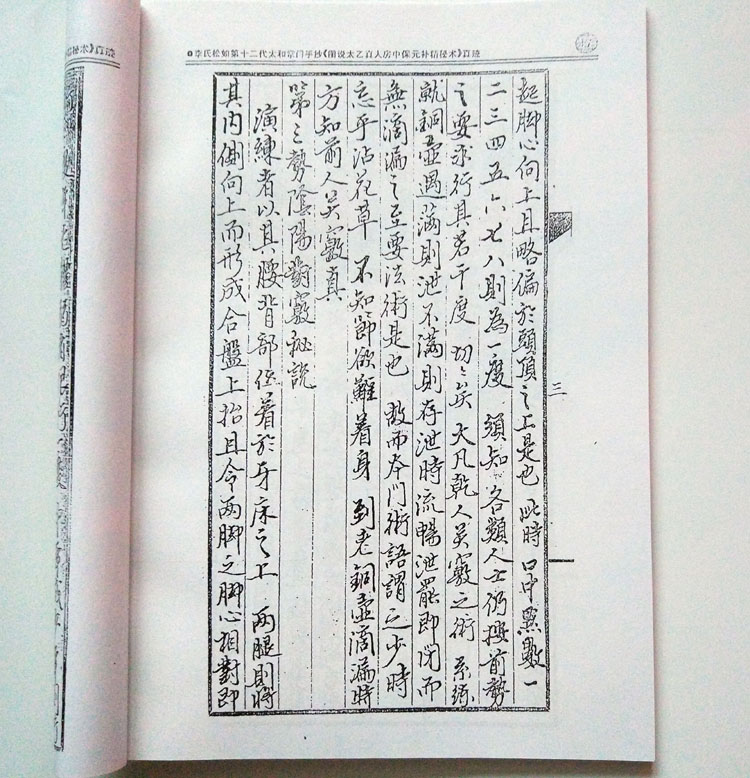 李氏松如第十二代太和掌门手抄《图说太乙真人房中保元补精秘术》真迹
秘术》真迹
起脚心向上且略偏於頭頂之上是也 此時 口中默數一
二三四五六七八則為一度 須知 各類人士仍按前勢
之要求行其若干度 切之矣 大凡乾人 之術 系
就銅壺遇滿則泄不滿則存泄時流暢泄罷即闭而
無滴漏之至要法術是也 故而本门術語謂之少時
忘乎沾花草 不知節欲難着身 到老銅壺滴漏時
方知前人 竅真
第三勢陰陽對竅秘説
演練者以其腰背部 着於牙床之上 两腿則將
其内側向上而形成合盤上抬且令两脚之脚心相對即
三